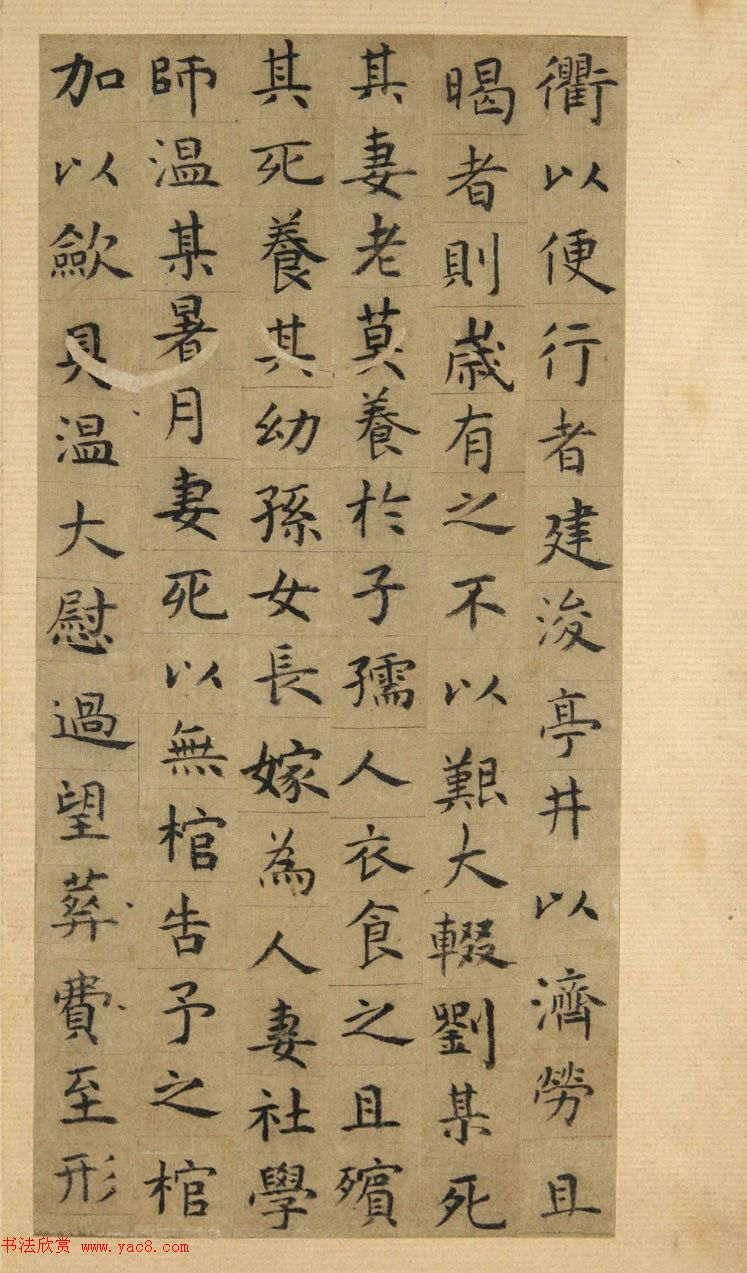 衢以便行者建浚亭井以濟勞且
暍者則歲有之不以艱大輟劉某死
其妻老莫養於子孺人衣食之且殯
其死養其幼孫女長嫁為人妻社學
師溫某暑月妻死以無棺告予之棺
加以歛具溫大慰過望葬費至形
书法欣赏 www.yac8.com